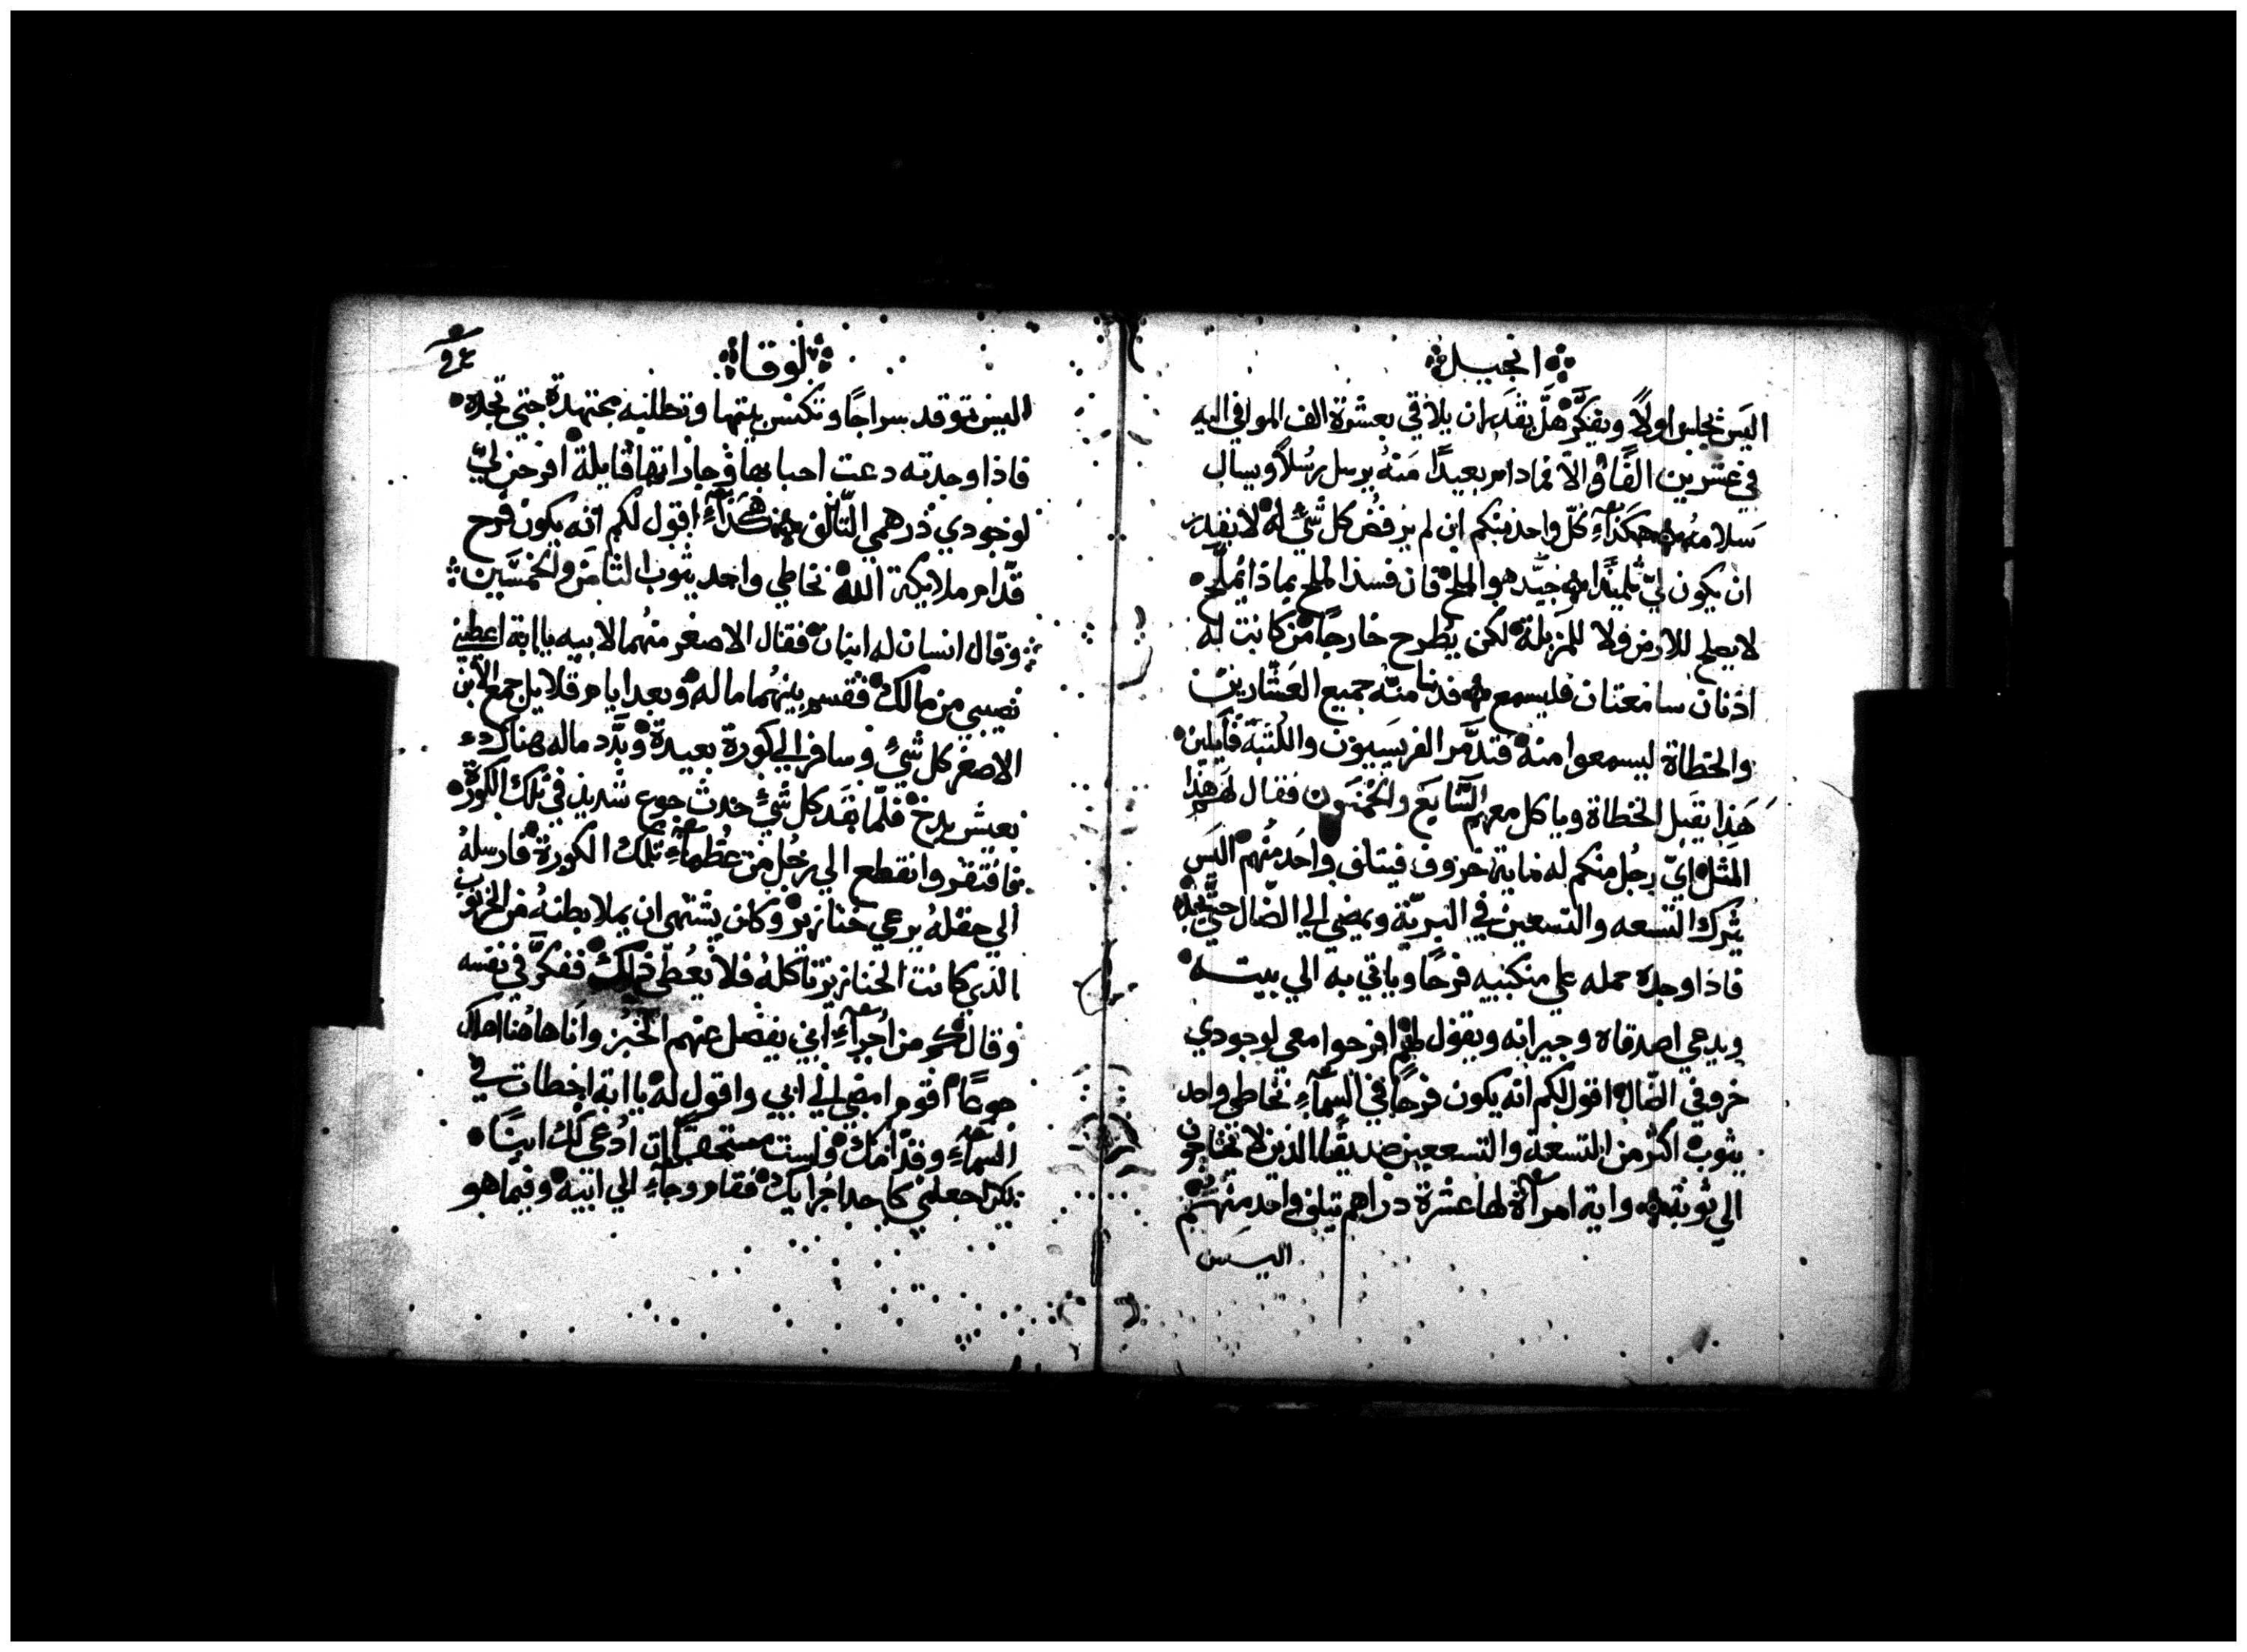 انجيل
اليس يجلس اولاً ويفكّر هل يقدر ان يلاقي بعشرة الف الموافي اليه
في عشرين الفًا والّا فما دام بعيدًا منهُ يرسل رُسُلاً ويسال
سَلامهُ هكذآءِ كلّ واحد منكم ان لم يرفض كل شيٍ له لا يقدر
ان يكون ليّ تلميذًا جيّد هو الملح فان فسد الملح بماذا يُملّح
لا يصلح للارض ولا للمزبلة لكن يُطرح خارجًا من كانت له
اذنان سامعتان فليسمع فدنا منه جميع العَشّارين
والخطاة ليسمعوا منه فتذّمر الفريسيون والكتبة قايلين
هَذا يقبل الخطاة وياكل معهم السّابع والخمسون فقال لهم هذا
المثل ايّ رجُل منكم له ماية خروف فيتلف واحَد منهم اليَس
يترك التسعه والتسعين في البريّة ويمضي الي الضّال حتّي يجده
فاذا وجده حمله علي منكبيه فرحًا وياتي به الي بيته
ويدعي اصدقاه وجيرانه ويقول لهم افرحوا معي لوجودي
خروفي الضّال اقول لكم انه يكون فرحًا في السمآءِ بخاطي واحد
يتوب اكثر من التسعة والتسعين صديقًا الذين لا يحتاجون
الي توبة واية امرآة لها عشرة دراهم يتلف واحد منهم
اليس
لوقا
٩٤
اليس توقد سراجًا وتكنس بيتها وتطلبه مجتهدة حتي تجده
فاذا وجدته دعت احبابها وجاراتها قايلة افرحن ليّ
لوجودي درهمي التّالف هكذآءِ اقول لكم انه يكون فرح
قدّام ملايكة الله بخاطي واحد يتوب الثامن والخمسّين
وقال انسان له ابنان فقال الاصغر منهُما لابيه يا ابة اعطيني
نصيبي من مالك فقسم بينهُما ماله وبعد ايام قلايل جمع الابن
الاصغر كل شيٍ وسافر الي كورة بعيدة وبدّد ماله هناك
بعيش بدخ فلمّا نفد كل شيٍ حدث جوع شديد في تلك الكورة
فافتقر وانقطع الي رجُل من عظمآءِ تلك الكورة فارسلهُ
الي حقلهُ يرعي خنازير وكان يشتهي ان يملا بطنهُ من الخرنوب
الذي كانت الخنازير تاكلهُ فلا يُعطي ذلك ففكّر في نفسه
وقال كم من اُجرآءِ ابي يفضل عنهم الخبز وانا هاهُنا اهلك
جوعًا اقوم امضي الي ابي واقول له يا ابة اخطات في
السمآءِ وقدّامك ولست مستحقًا ان اُدعي لك ابنًا
لكن اجعلني كاحد اجرايك فقام وجآءِ الي ابيه وفيما هو